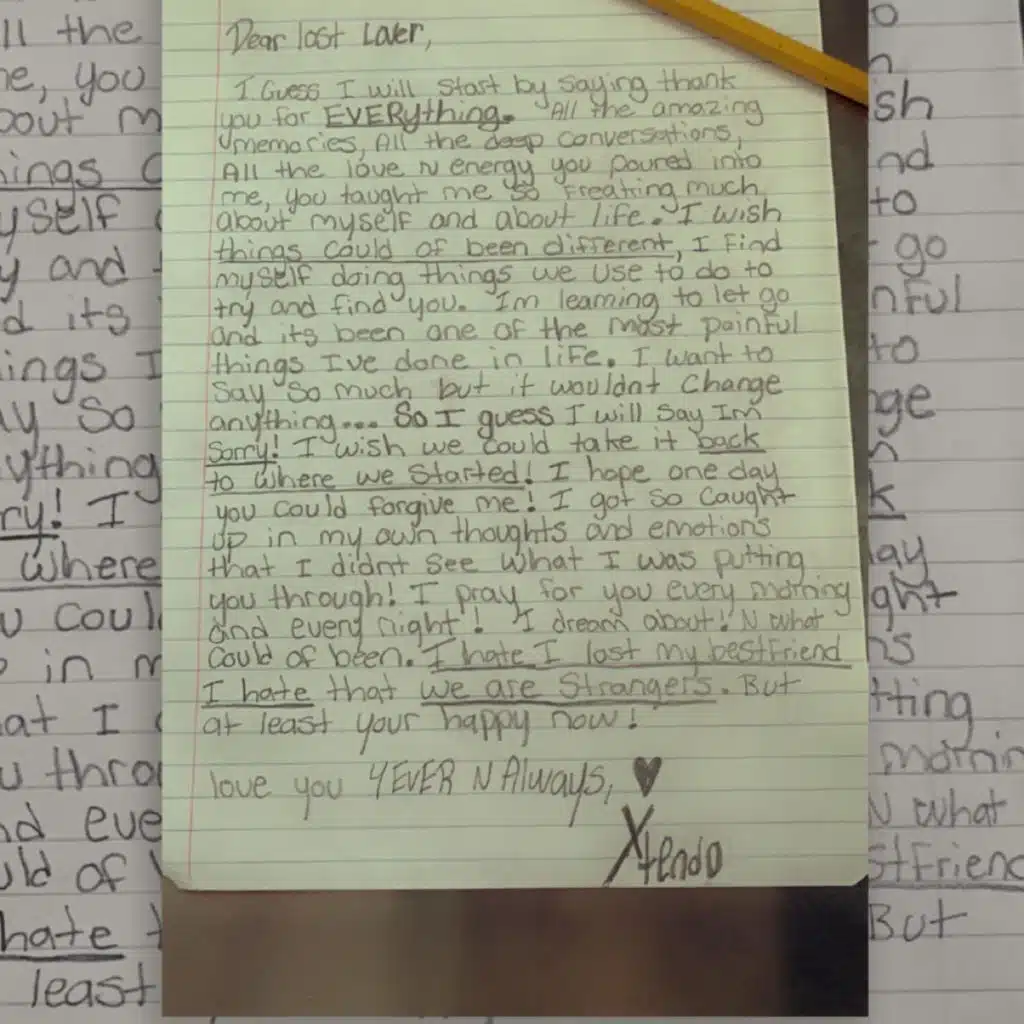 Dear lost Lover,
I Guess I will start by saying thank
you for EVERYthing. All the amazing
memories, All the deep conversations,
All the love N energy you poured into
me, you taught me so freaking much
about myself and about life. I wish
things could of been different, I find
myself doing things we use to do to
try and find you. Im learning to let go
and its been one of the most painful
things Ive done in life. I want to
say so much but it wouldnt change
anything... So I guess I will say Im
Sorry! I wish we could take it back
to where we started! I hope one day
you could forgive me! I got so caught
up in my own thoughts and emotions
that I didnt see what I was putting
you through! I pray for you every morning
and every night! I dream about! N what
could of been. I hate I lost my bestfriend
I hate that we are strangers. But
at least your happy now!
love you 4EVER N Always, ♥
Xtendo